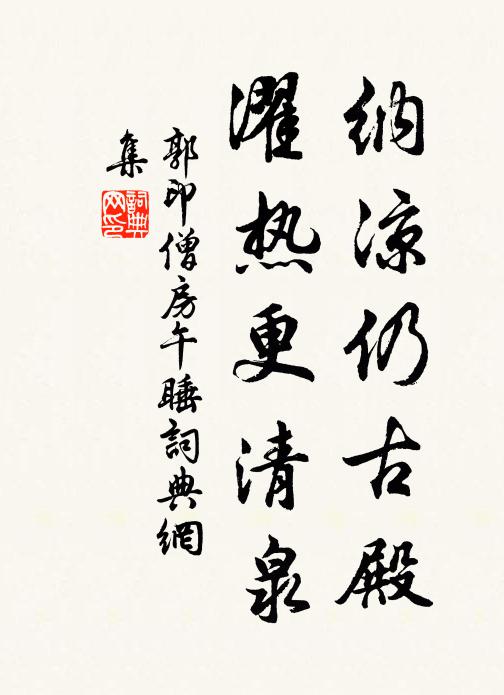 纳凉仍古殿
濯热更清泉
郭印僧房午睡詞典網
集
詞典
网印